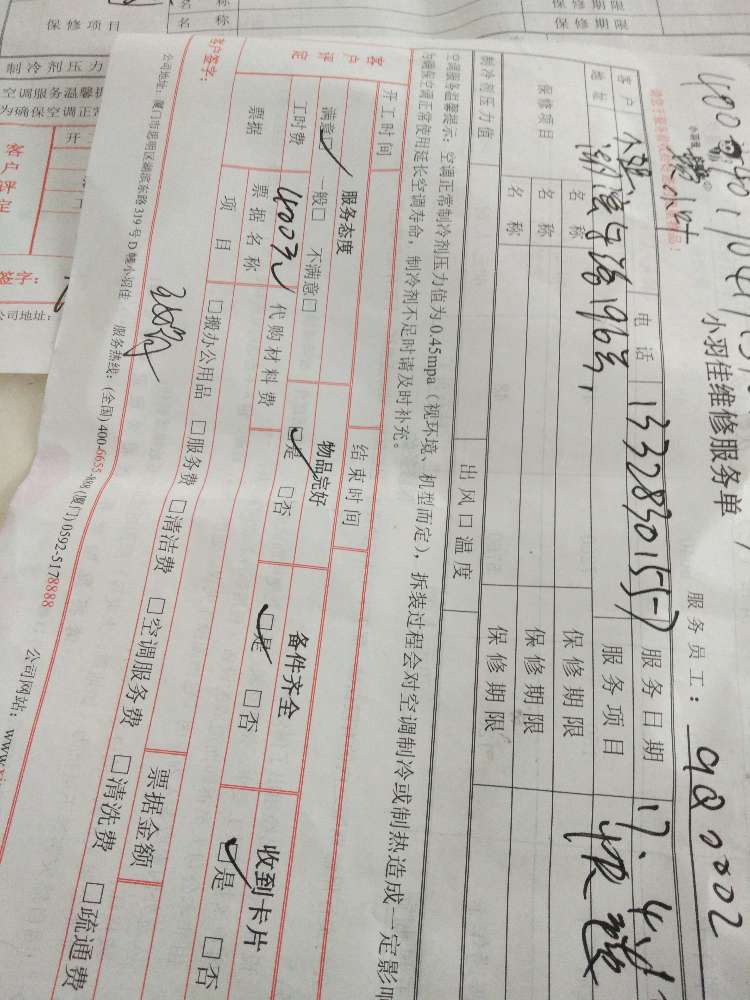 小羽佳维修服务单
服务员工：980002
客户 电话 13328301557 服务日期 17.4
地址 湖滨 路196号 服务项目
保修项目 名称 保修期限
名称 保修期限
名称 保修期限
制冷剂压力值 出风口温度
空调服务温馨提示：空调正常制冷剂压力值为0.45mpa（视环境、机型而定），拆装过程会对空调制冷或制热造成一定影响
为确保空调正常使用延长空调寿命，制冷剂不足时请及时补充。
开工时间 结束时间
客户评定 服务态度 物品完好 备件齐全 收到卡片
满意☑ 一般□ 不满意□ ☑是 □否 ☑是 □否 ☑是 □否
工时费 400元 代购材料费
票据 票据名称 票据金额
项目 □搬办公用品 □服务费 □清洁费 □空调服务费 □清洗费 □疏通费
客户签字：
公司地址：厦门市思明区湖滨东路319号D幢小羽佳 服务热线：(全国)400-6655-808 (厦门)0592-5178888 公司网站：www.
保修项目
名称 保修期限
名称 保修期限
制冷剂压力
空调服务温馨提
为确保空调正常
客户评定
开工
签字：
公司地址：